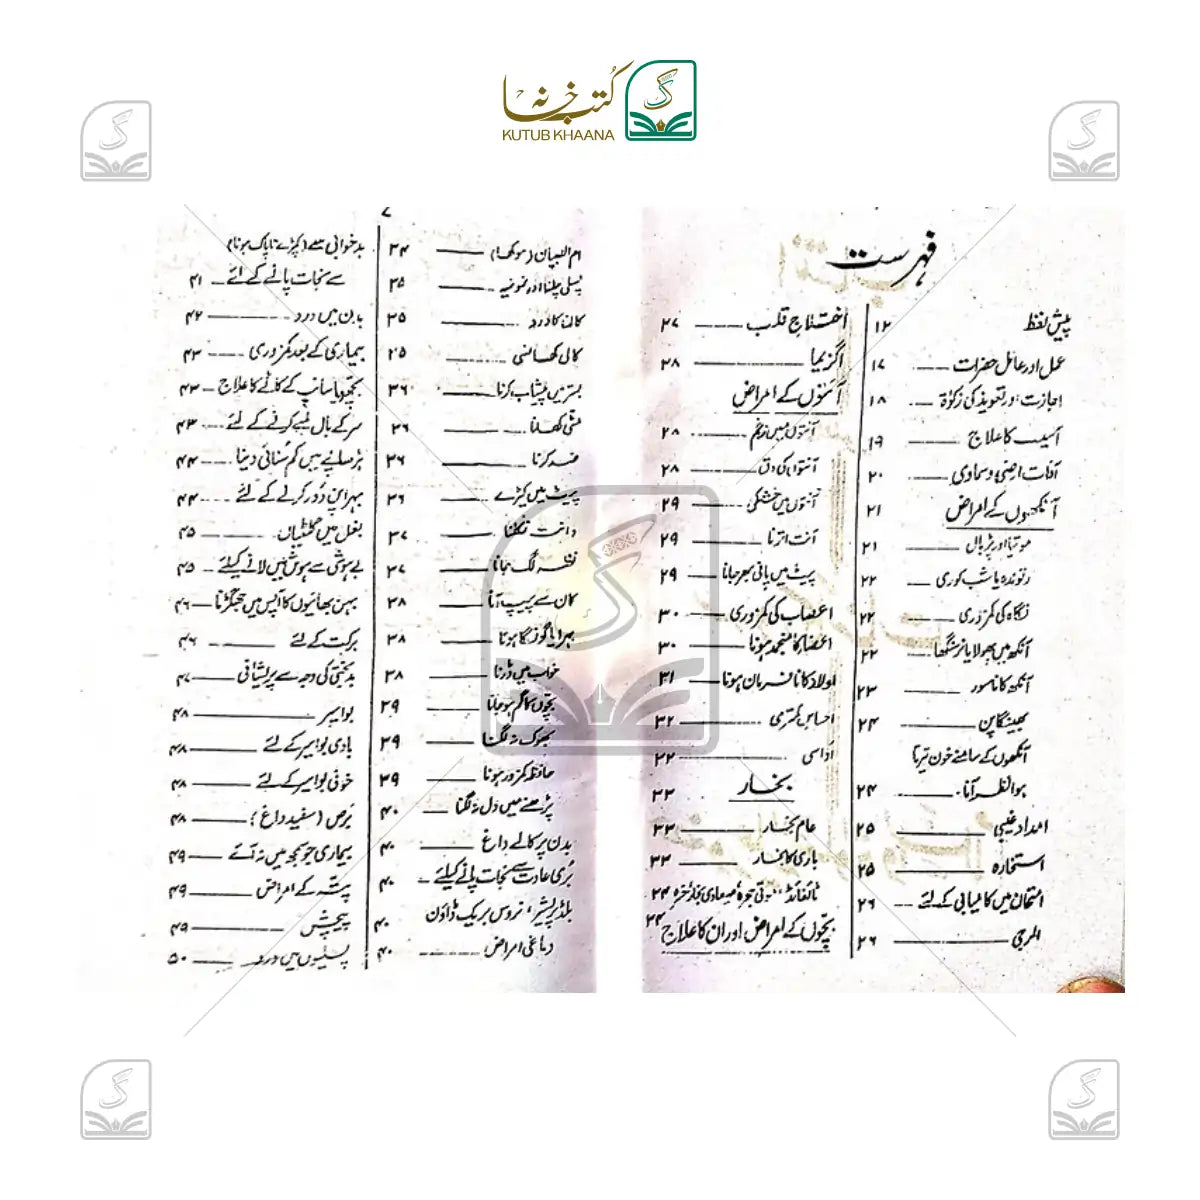 کتب خانہ
KUTUB KHAANA
فہرست
پیش لفظ ۱۲
عمل اور عامل حضرات ۱۷
اجازت اور تعویذ کی زکوٰۃ ۱۸
آسیب کا علاج ۱۹
آفات ارضی و سماوی ۲۰
آنکھوں کے امراض ۲۱
موتیا اور پڑبال ۲۱
رتوندہ یا شب کوری ۲۲
نگاہ کی کمزوری ۲۲
آنکھ میں پھولا یا ناخنہ ۲۲
آنکھ کا ناسور ۲۳
بھینگا پن ۲۴
آنکھوں کے سامنے خون تیرتا
ہوا نظر آنا ۲۴
امداد غیبی ۲۵
استخارہ ۲۵
امتحان میں کامیابی کے لئے ۲۶
الرجی ۲۶
اختلاج قلب ۲۷
اگزیما ۲۸
آنتوں کے امراض
آنتوں میں زخم ۲۸
آنتوں کی دق ۲۸
آنتوں میں خشکی ۲۹
آنت اترنا ۲۹
پیٹ میں پانی بھر جانا ۲۹
اعصاب کی کمزوری ۳۰
اعضاء کا منجمد ہونا ۳۰
اولاد کا نافرمان ہونا ۳۱
احساس کمتری ۳۲
اداسی ۳۲
بخار ۳۳
عام بخار ۳۳
باری کا بخار ۳۳
ٹائیفائڈ موتی جھرہ میعادی بخار خسرہ ۳۴
بچوں کے امراض اور ان کا علاج ۳۴
۷
ام الصبیان (سوکھا) ۳۴
پسلی چلنا اور نمونیہ ۳۵
کان کا درد ۳۵
کالی کھانسی ۳۵
بستر میں پیشاب کرنا ۳۶
مٹی کھانا ۳۶
ضد کرنا ۳۶
پیٹ میں کیڑے ۳۶
دانت نکلنا ۳۷
نظر لگ جانا ۳۷
کان سے پیپ آنا ۳۸
بہرا یا گونگا ہونا ۳۸
خواب میں ڈرنا ۳۸
بچوں کا گم ہو جانا ۳۹
بھوک نہ لگنا ۳۹
حافظہ کمزور ہونا ۳۹
پڑھنے میں دل نہ لگنا ۴۰
بدن پر کالے داغ ۴۰
بُری عادت سے نجات پانے کیلئے ۴۰
بلڈ پریشر، نروس بریک ڈاؤن ۴۰
دماغی امراض ۴۰
بدخوابی سے (کپڑے ناپاک ہونا)
سے نجات پانے کے لئے ۴۱
بدن میں درد ۴۲
بیماری کے بعد کمزوری ۴۳
بچھو یا سانپ کے کاٹے کا علاج ۴۳
سر کے بال لمبے کرنے کے لئے ۴۳
بڑھاپے میں کم سنائی دینا ۴۴
بہرا پن دور کرنے کے لئے ۴۴
بغل میں گلٹیاں ۴۵
بے ہوشی سے ہوش میں لانے کیلئے ۴۵
بہن بھائیوں کا آپس میں جھگڑنا ۴۶
برکت کے لئے ۴۶
بدبختی کی وجہ سے پریشانی ۴۷
بواسیر ۴۸
بادی بواسیر کے لئے ۴۸
خونی بواسیر کے لئے ۴۸
برص (سفید داغ) ۴۸
بیماری جو سمجھ میں نہ آئے ۴۹
پتہ کے امراض ۴۹
پیچش ۴۹
پسلیوں میں درد ۵۰